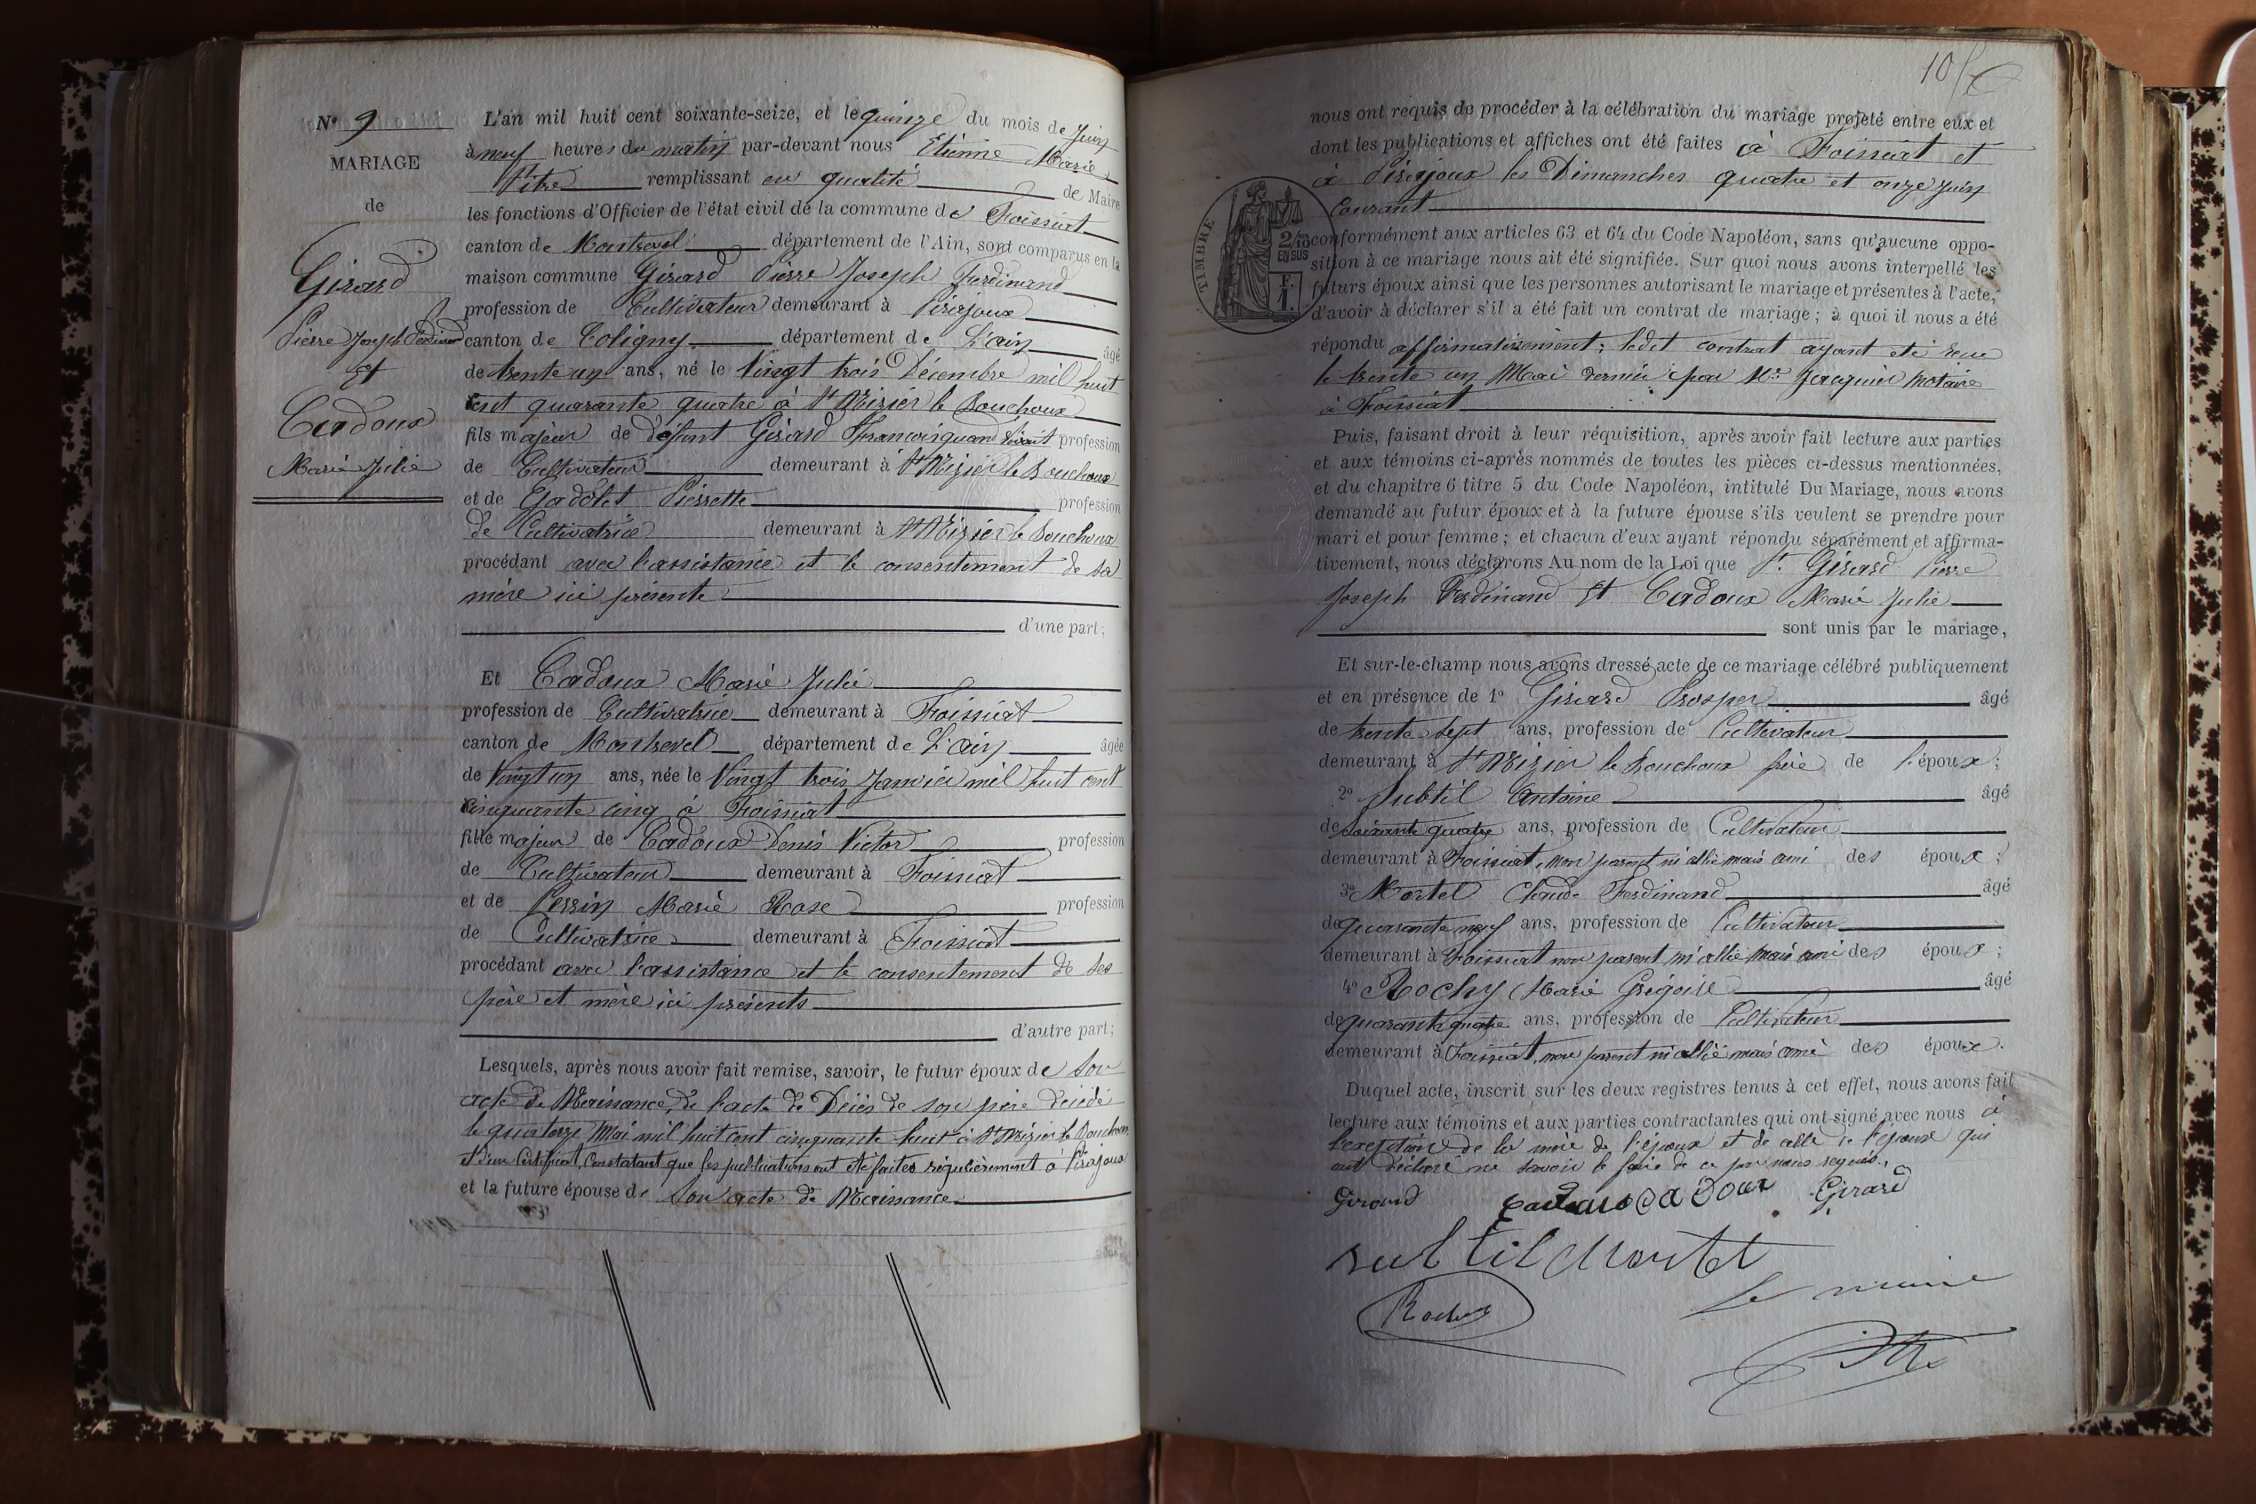 N° 9
MARIAGE
de
Girard
Pierre Joseph Ferdinand
et
Cadoux
Marie Julie
L'an mil huit cent soixante-seize, et le quinze du mois de Juin
à neuf heures du matin par-devant nous Etienne Marie
Pitre remplissant en qualité de Maire
les fonctions d'Officier de l'état civil de la commune de Foissiat
canton de Montrevel département de l'Ain, sont comparus en la
maison commune Girard Pierre Joseph Ferdinand
profession de Cultivateur demeurant à Pirajoux
canton de Coligny département de L'ain âgé
de trente un ans, né le Vingt trois Décembre mil huit
cent quarante quatre à St Nizier le Bouchoux
fils majeur de défunt Girard François quand vivait profession
de Cultivateur demeurant à St Nizier le Bouchoux
et de Pierrette profession
de Cultivatrice demeurant à St Nizier le Bouchoux
procédant avec l'assistance et le consentement de sa
mère ici présente
d'une part;
Et Cadoux Marie Julie
profession de Cultivatrice demeurant à Foissiat
canton de Montrevel département de L'ain âgée
de Vingt un ans, née le Vingt trois Janvier mil huit cent
cinquante cinq à Foissiat
fille majeur de Cadoux Denis Victor profession
de Cultivateur demeurant à Foissiat
et de Perrin Marie Rose profession
de Cultivatrice demeurant à Foissiat
procédant avec l'assistance et le consentement de ses
père et mère ici présents
d'autre part;
Lesquels, après nous avoir fait remise, savoir, le futur époux de son
acte de Naissance, de l'acte de Décès de son père décédé
le quatorze Mai mil huit cent cinquante huit à St Nizier le Bouchoux
et d'un Certificat, Constatant que les publications ont été faites régulièrement à Pirajoux
et la future épouse de Son acte de Naissance
10
nous ont requis de procéder à la célébration du mariage projeté entre eux et
dont les publications et affiches ont été faites à Foissiat et
à Pirajoux les Dimanches quatre et onze Juin
Courant
TIMBRE
2/10
EN SUS
conformément aux articles 63 et 64 du Code Napoléon, sans qu'aucune oppo-
sition à ce mariage nous ait été signifiée. Sur quoi nous avons interpellé les
futurs époux ainsi que les personnes autorisant le mariage et présentes à l'acte,
d'avoir à déclarer s'il a été fait un contrat de mariage; à quoi il nous a été
répondu affirmativement; ledit contrat ayant été reçu
le trente un Mai dernier par Me Jacquier Notaire
à Foissiat
Puis, faisant droit à leur réquisition, après avoir fait lecture aux parties
et aux témoins ci-après nommés de toutes les pièces ci-dessus mentionnées,
et du chapitre 6 titre 5 du Code Napoléon, intitulé Du Mariage, nous avons
demandé au futur époux et à la future épouse s'ils veulent se prendre pour
mari et pour femme; et chacun d'eux ayant répondu séparément et affirma-
tivement, nous déclarons Au nom de la Loi que Sr Girard Pierre
Joseph Ferdinand Et Cadoux Marie Julie
sont unis par le mariage,
Et sur-le-champ nous avons dressé acte de ce mariage célébré publiquement
et en présence de 1° Girard Prosper âgé
de trente sept ans, profession de Cultivateur
demeurant à St Nizier le Bouchoux frère de l'époux;
2° Subtil Antoine âgé
de soixante quatre ans, profession de Cultivateur
demeurant à Foissiat, non parent ni allié mais ami des époux;
3° Mortel Claude Ferdinand âgé
de quarante neuf ans, profession de Cultivateur
demeurant à Foissiat non parent ni allié mais ami des époux;
4° Rochy Marie Grégoire âgé
de quarante quatre ans, profession de Cultivateur
demeurant à Foissiat, non parent ni allié mais ami des époux.
Duquel acte, inscrit sur les deux registres tenus à cet effet, nous avons fait
lecture aux témoins et aux parties contractantes qui ont signé avec nous à
l'exception de la mère de l'époux et de celle de l'épouse qui
ont déclaré ne savoir le faire de ce par nous requis.
Girard Cadoux Girard
subtil Mortel
Rochy
le maire
Pitre